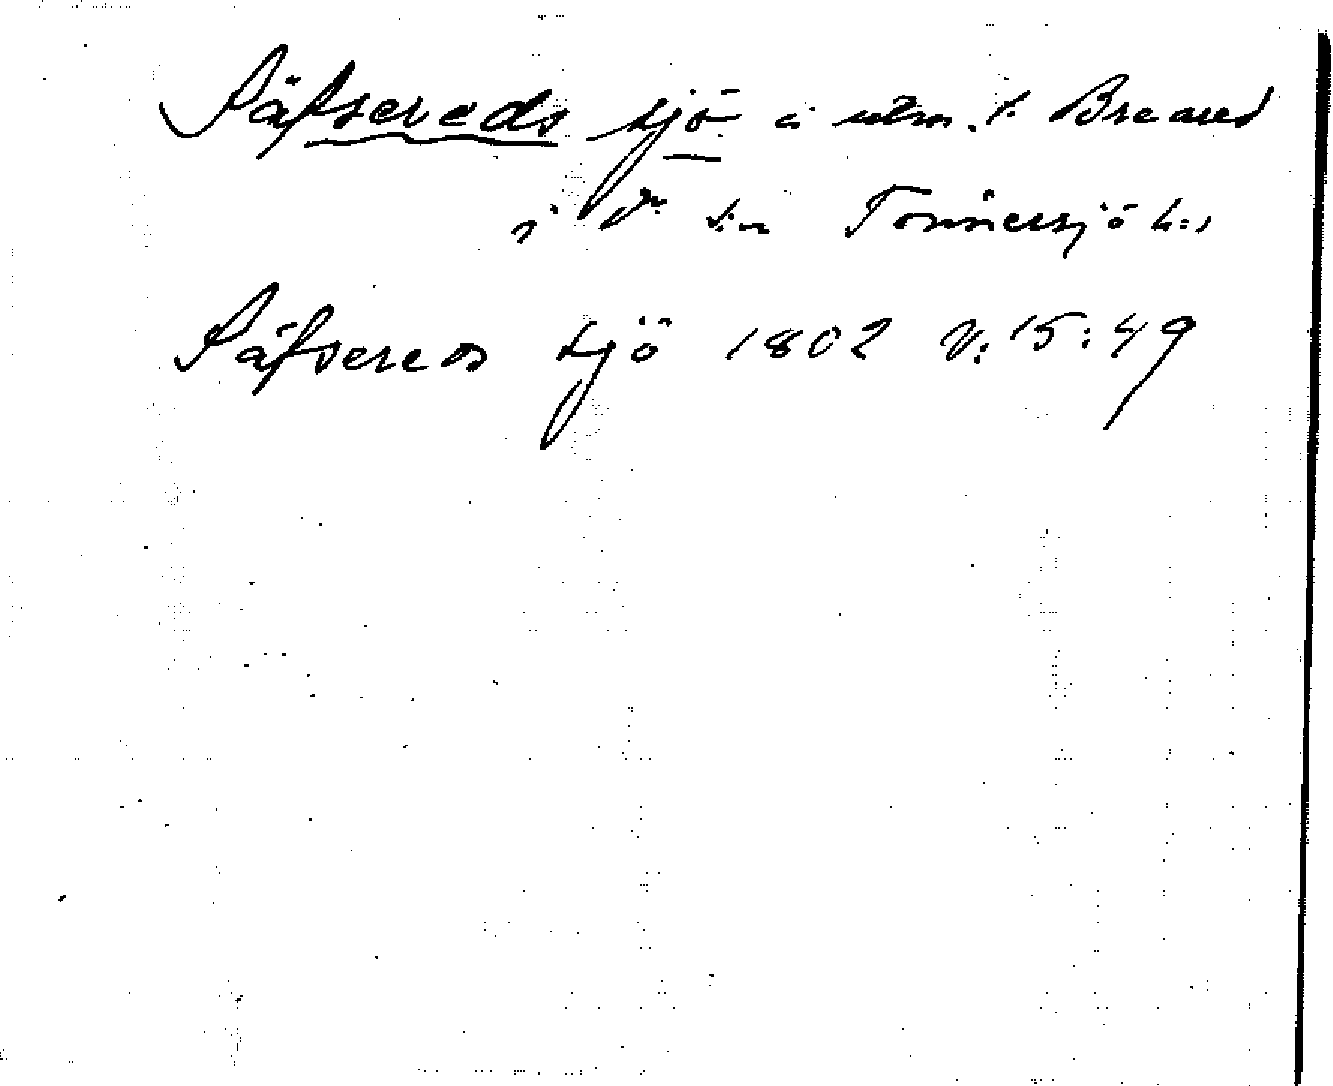 Säfsereds sjö å utm. t. Breared
i d:o s:n Tönnersjö h:d
Säfsereds sjö 1802 V. 15:49